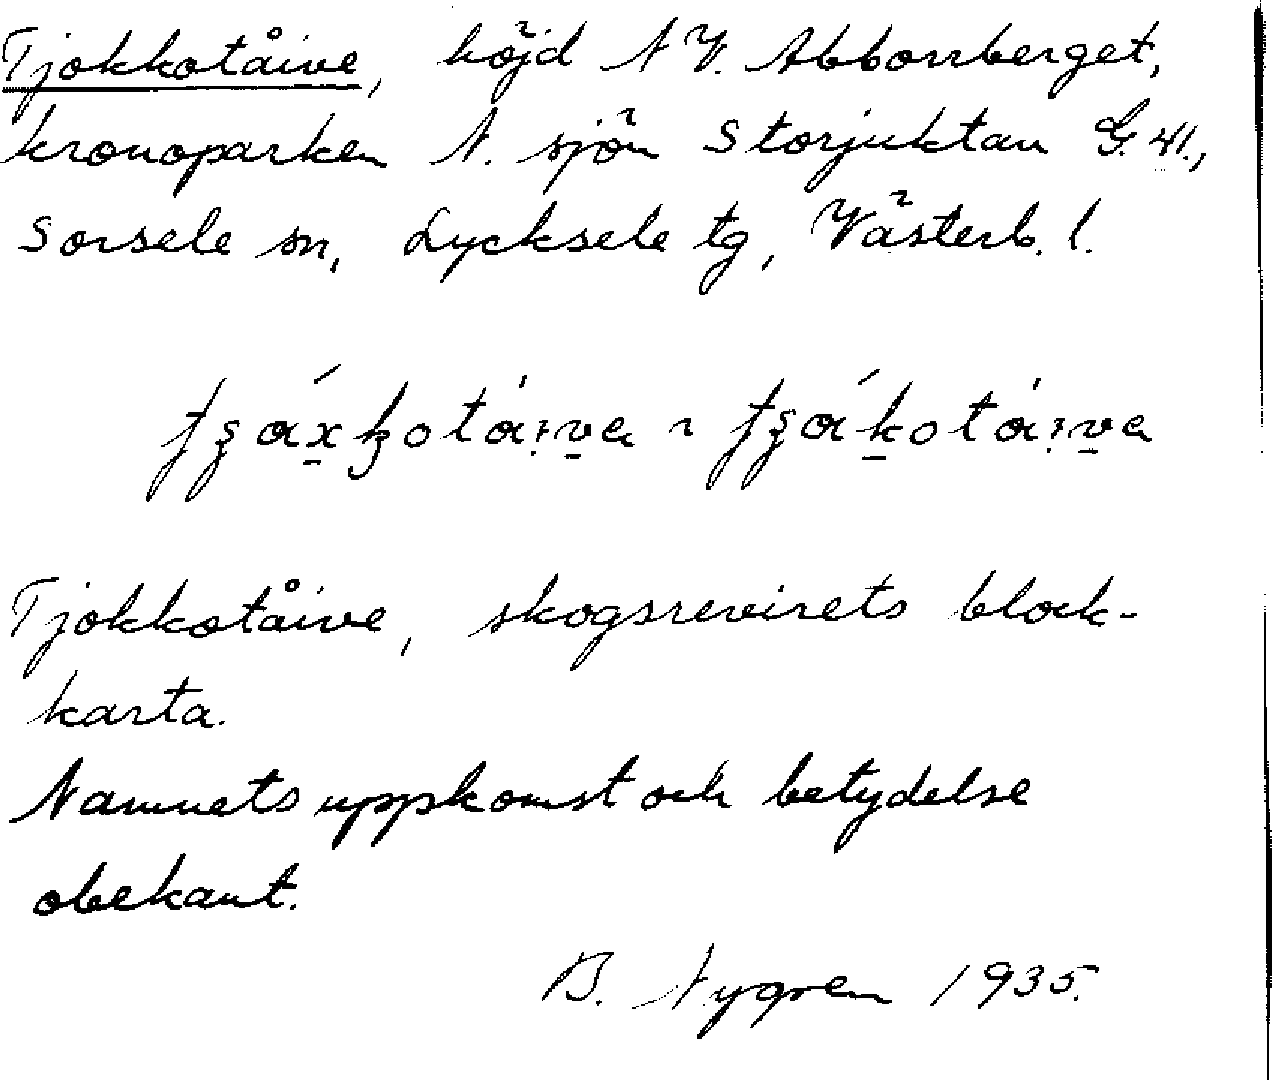 Tjokkotåive, höjd N V. Abborrberget,
kronoparken N. sjön Storjuktan G. 41.,
Sorsele sn, Lycksele tg, Västerb. l.
Tjokkotåive, skogsrevirets block-
karta.
Namnets uppkomst och betydelse
obekant.
B. Nygren 1935.